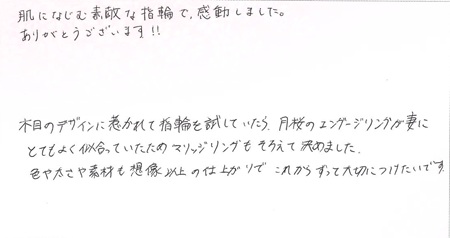 肌になじむ素敵な指輪で、感動しました。
ありがとうございます!!
木目のデザインに惹かれて指輪を試していたら、月桜のエンゲージリングが妻に
とてもよく似合っていたためマリッジリングもそろえて決めました。
色や太さや素材も想像以上の仕上がりで これからずっと大切につけたいです。